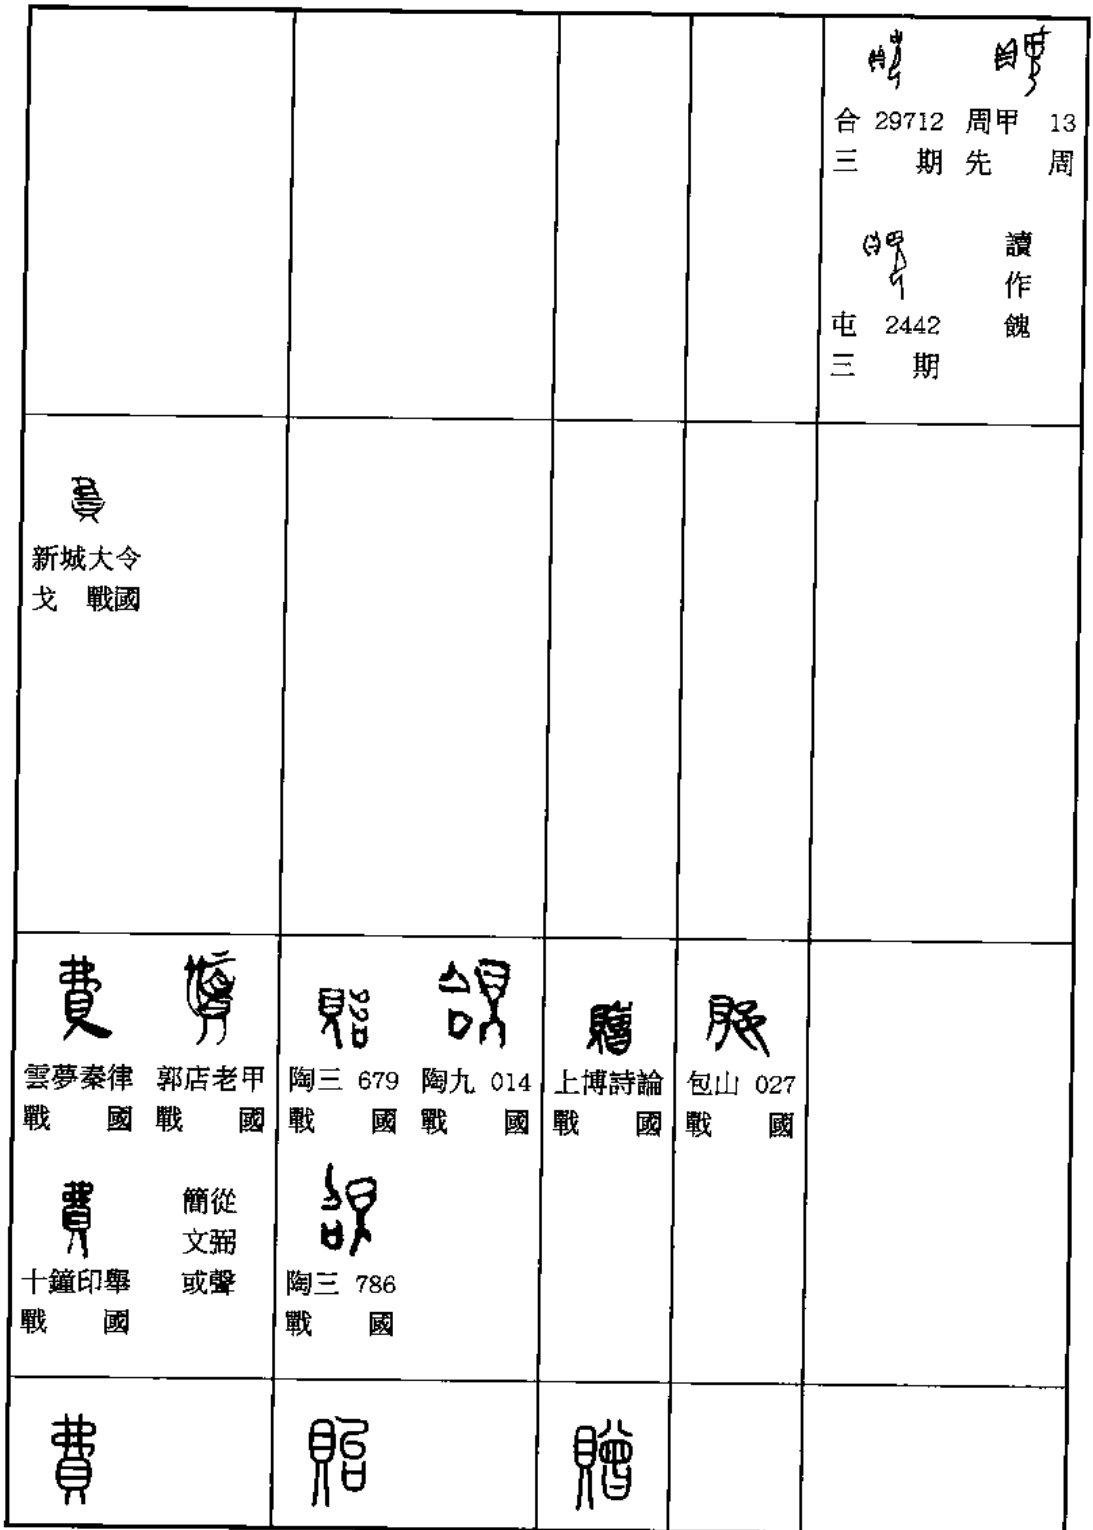 合 29712 周甲 13
三期 先周
屯 2442
三期
讀作餽
新城大令
戈 戰國
費
雲夢秦律 郭店老甲
戰國 戰國
費
十鐘印舉
戰國
簡從
文弼
或聲
貽
陶三 679 陶九 014
戰國 戰國
陶三 786
戰國
贈
上博詩論
戰國
包山 027
戰國
費 貽 贈